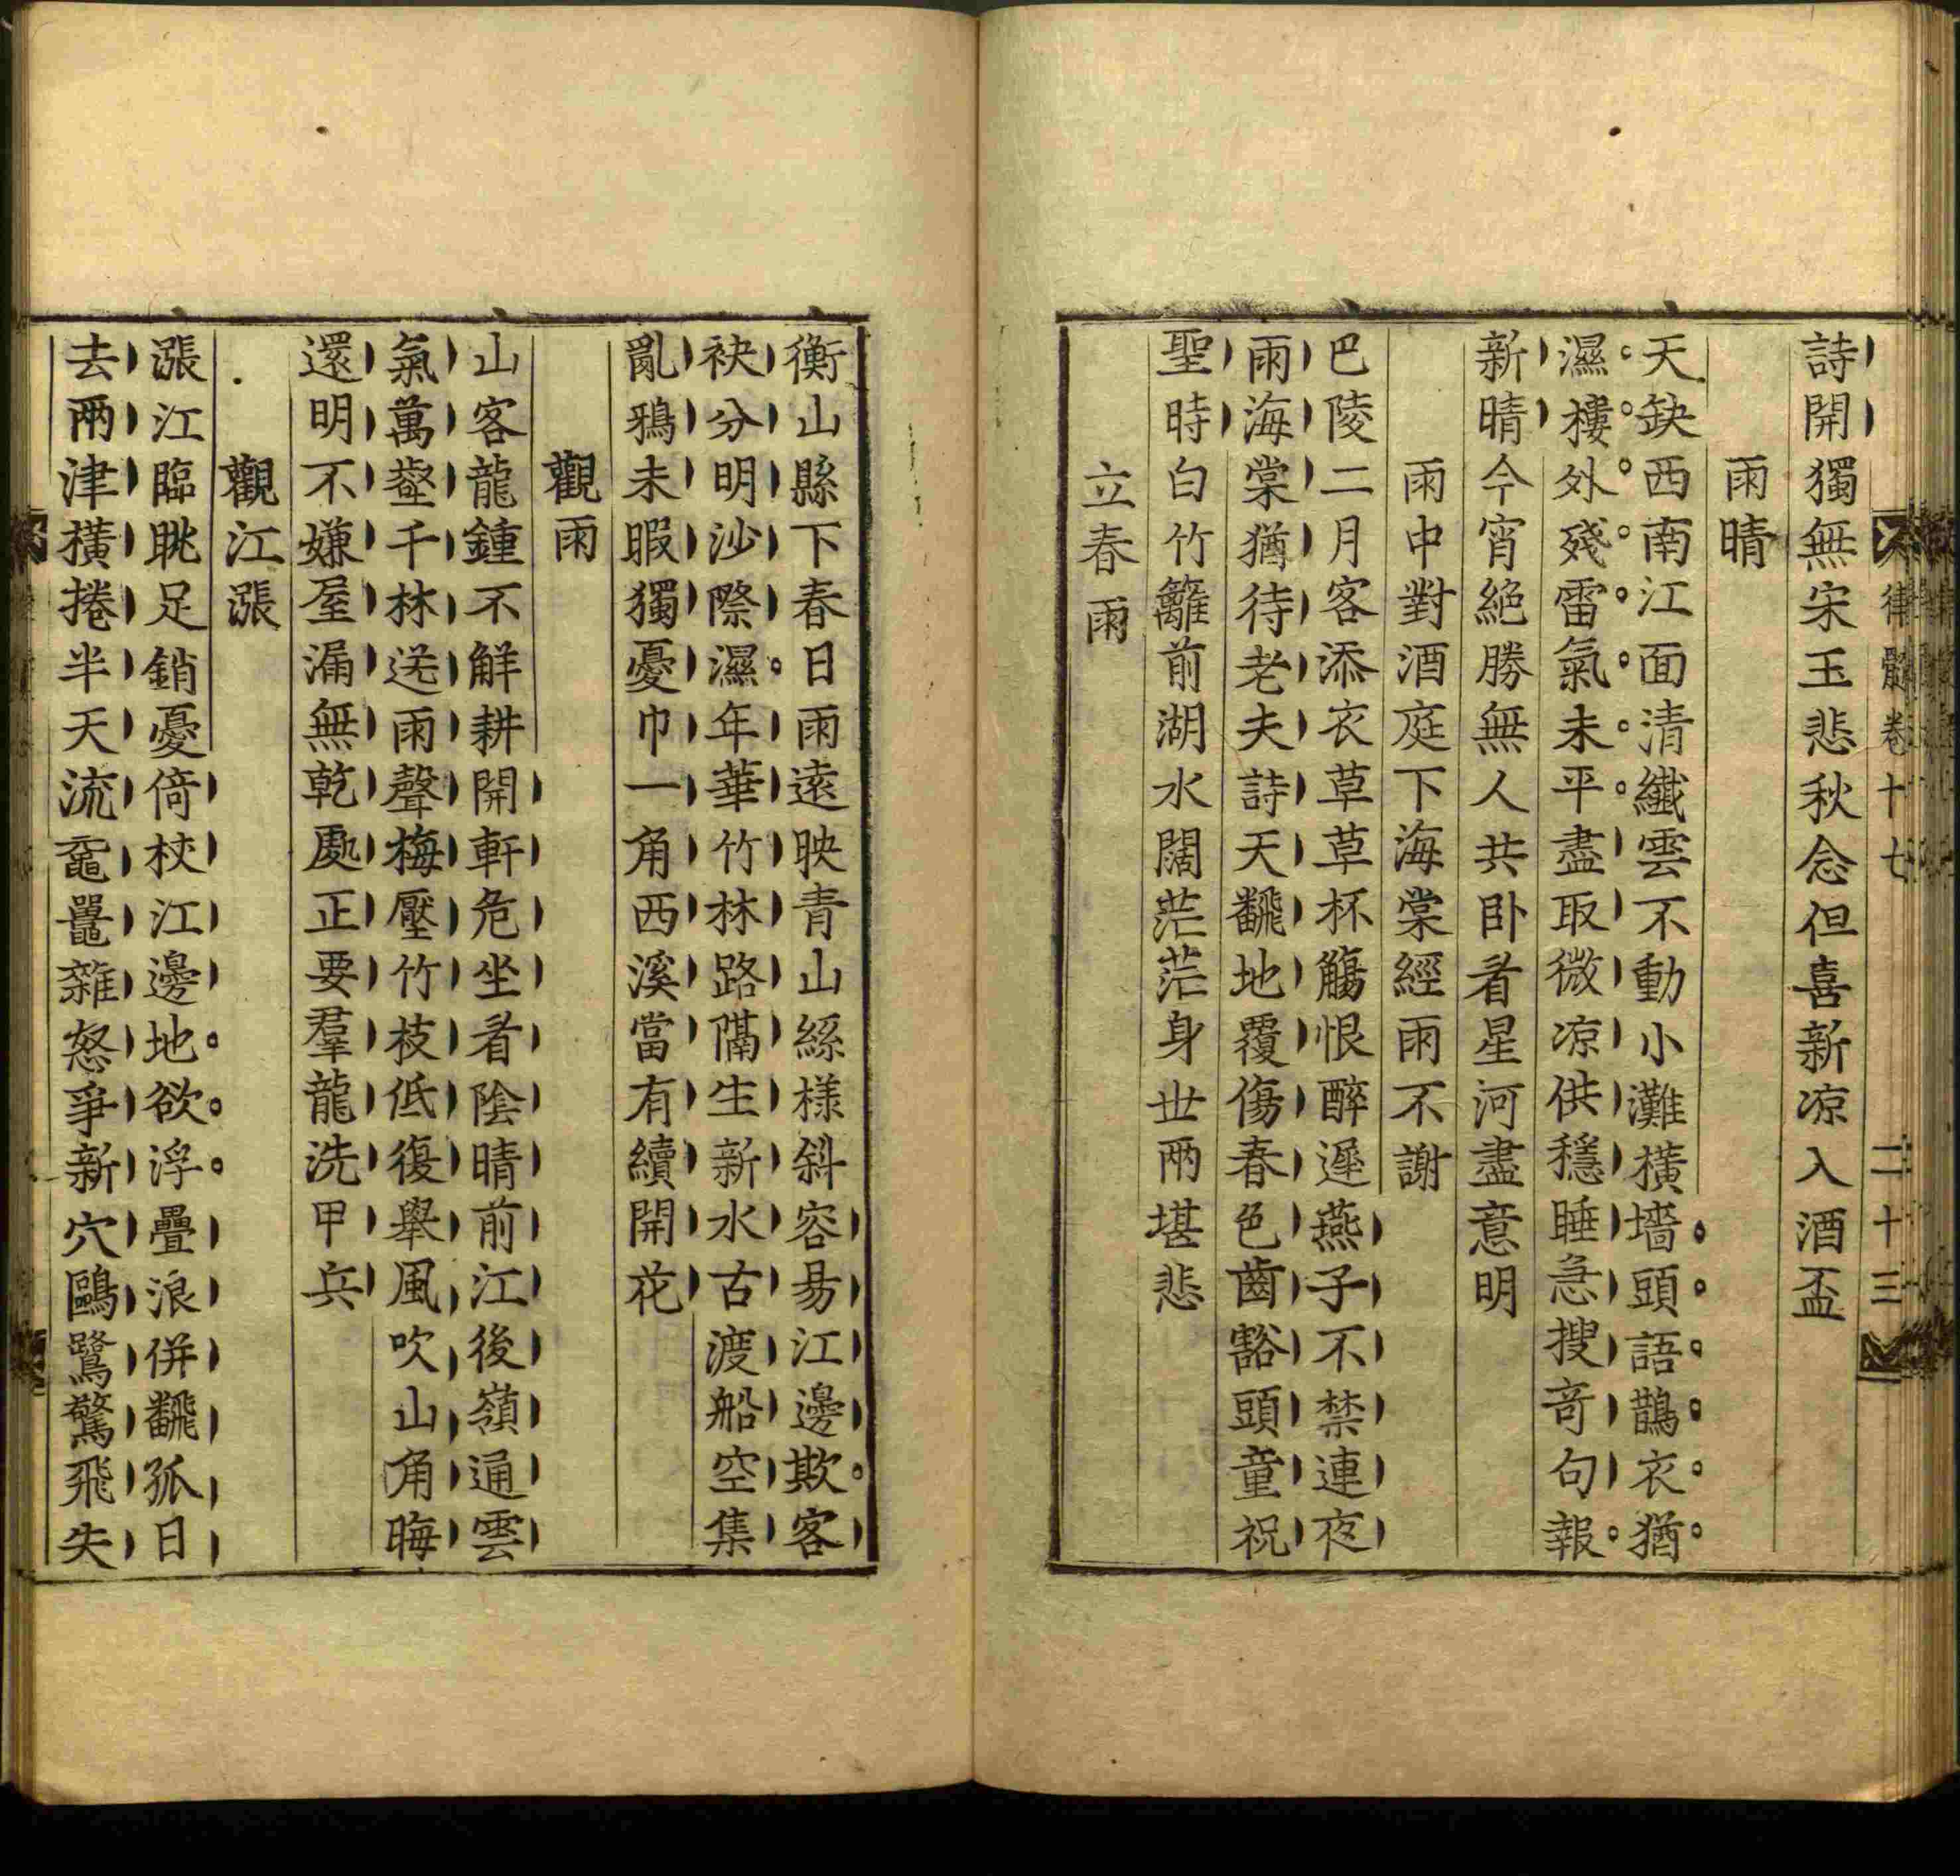 律髓卷十七 二十三
詩開獨無宋玉悲秋念但喜新凉入酒盃
雨晴
天缺西南江面清纖雲不動小灘橫墻頭語鵲衣猶
濕樓外殘雷氣未平盡取微凉供穩睡急搜奇句報
新晴今宵絕勝無人共卧看星河盡意明
雨中對酒庭下海棠經雨不謝
巴陵二月客添衣草草杯觴恨醉遲燕子不禁連夜
雨海棠猶待老夫詩天飜地覆傷春色齒豁頭童祝
聖時白竹籬前湖水闊茫茫身世兩堪悲
立春雨
衡山縣下春日雨遠映青山絲樣斜容易江邊欺客
袂分明沙際濕年華竹林路隔生新水古渡船空集
亂鴉未暇獨憂巾一角西溪當有續開花
觀雨
山客龍鍾不解耕開軒危坐看陰晴前江後嶺通雲
氣萬壑千林送雨聲梅壓竹枝低復舉風吹山角晦
還明不嫌屋漏無乾處正要羣龍洗甲兵
觀江漲
漲江臨眺足銷憂倚杖江邊地欲浮疊浪併飜孤日
去兩津橫捲半天流黿鼉雜怒爭新穴鷗鷺驚飛失